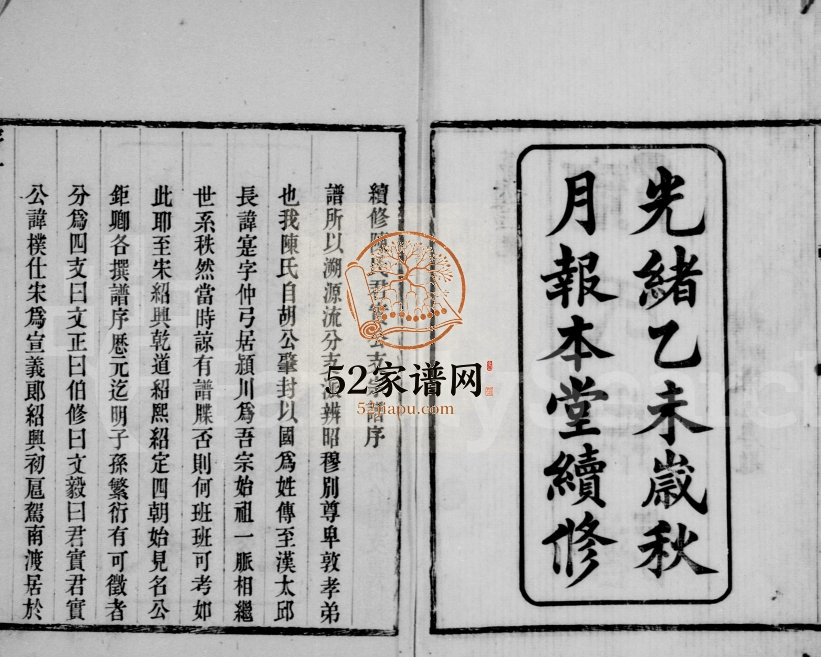 光緒乙未歲秋
月報本堂續修
續修陳氏君實公支宗譜序
譜所以溯源流分支派辨昭穆別尊卑敦孝弟
也我陳氏自胡公肇封以國為姓傳至漢太邱
長諱寔字仲弓居潁川為吾宗始祖一脈相繼
世系秩然當時諒有譜牒否則何班班可考如
此耶至宋紹興乾道紹熙紹定四朝始見名公
鉅卿各撰譜序歷元迄明子孫繁衍有可徵者
分爲四支曰文正曰伯修曰文毅曰君實君實
公諱樸仕宋爲宣義郎紹興初扈駕南渡居於
52家谱网
52jiapu.com